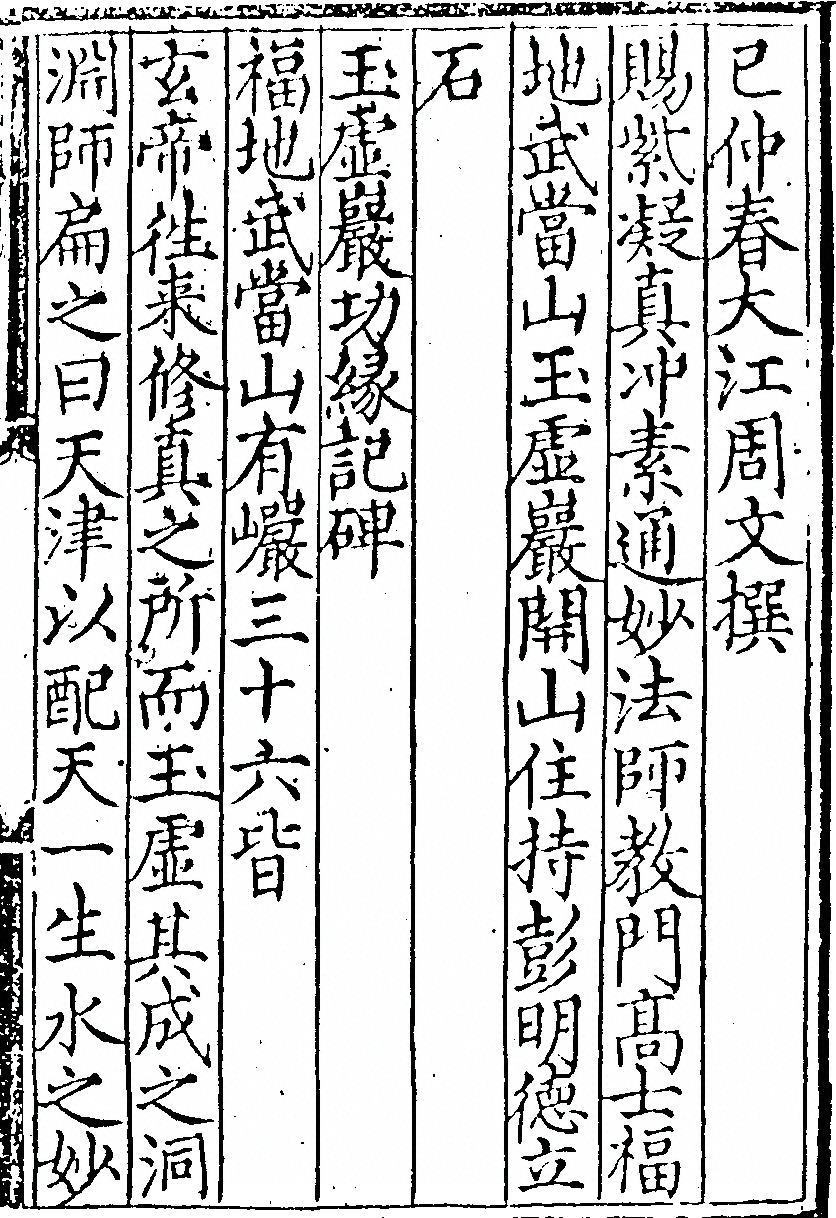 已仲春大江周文撰
賜紫凝真冲素通妙法師教門髙士福
地武當山玉虛巖開山住持彭明德立
石
玉虛巖功緣記碑
福地武當山有巗三十六皆
玄帝徃来修真之所而玉虛其成之洞
淵師扁之曰天津以配天一生水之妙